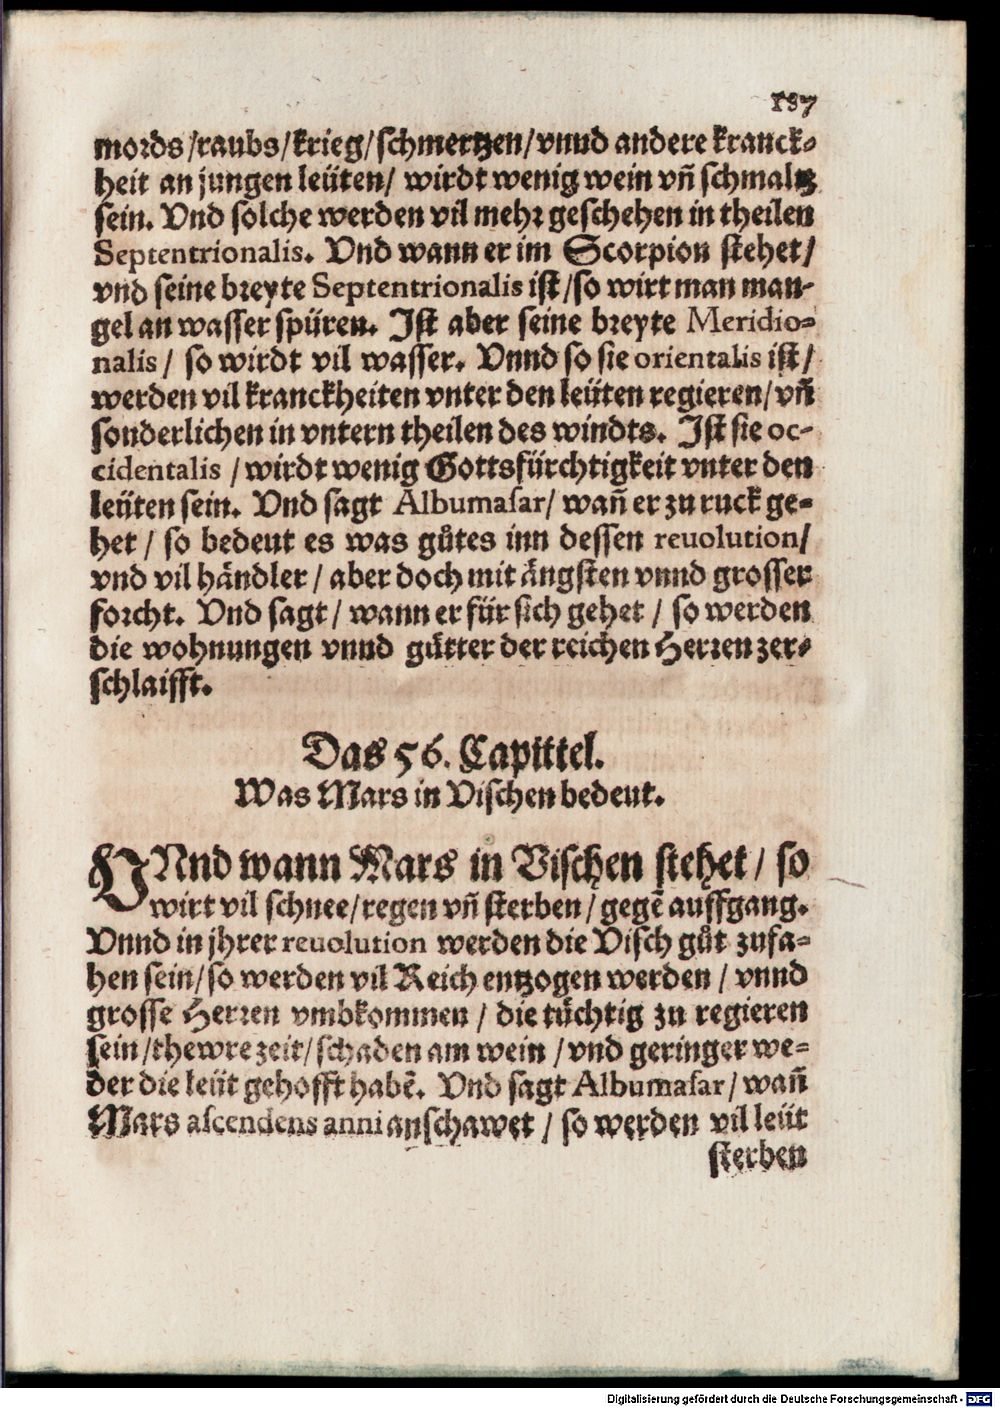 187
mords/raubs/krieg/schmertzen/vnnd andere kranck⸗
heit an jungen leüten/ wirdt wenig wein vñ schmaltz
sein. Vnd solche werden vil mehr geschehen in theilen
Septentrionalis. Vnd wann er im Scorpion stehet/
vnd seine breyte Septentrionalis ist/so wirt man man⸗
gel an wasser spüren. Ist aber seine breyte Meridio⸗
nalis/ so wirdt vil wasser. Vnnd so sie orientalis ist/
werden vil kranckheiten vnter den leüten regieren/vñ
sonderlichen in vntern theilen des windts. Ist sie oc⸗
cidentalis /wirdt wenig Gottsfürchtigkeit vnter den
leüten sein. Vnd sagt Albumasar/ wañ er zu ruck ge⸗
het / so bedeut es was gůtes inn dessen reuolution/
vnd vil händler / aber doch mit ängsten vnnd grosser
forcht. Vnd sagt / wann er für sich gehet / so werden
die wohnungen vnnd gütter der reichen Herren zer⸗
schlaifft.
Das 56. Capittel.
Was Mars in Vischen bedeut.
VNnd wann Mars in Vischen stehet / so
wirt vil schnee/regen vñ sterben/gegē auffgang.
Vnnd in jhrer reuolution werden die Visch gůt zufa⸗
hen sein/so werden vil Reich entzogen werden / vnnd
grosse Herren vmbkommen / die tüchtig zu regieren
sein/thewre zeit/schaden am wein /vnd geringer we⸗
der die leüt gehofft habē. Vnd sagt Albumasar/ wañ
Mars ascendens anni anschawet / so werden vil leüt
sterben
Digitalisierung gefördert durch die Deutsche Forschungsgemeinschaft - DFG